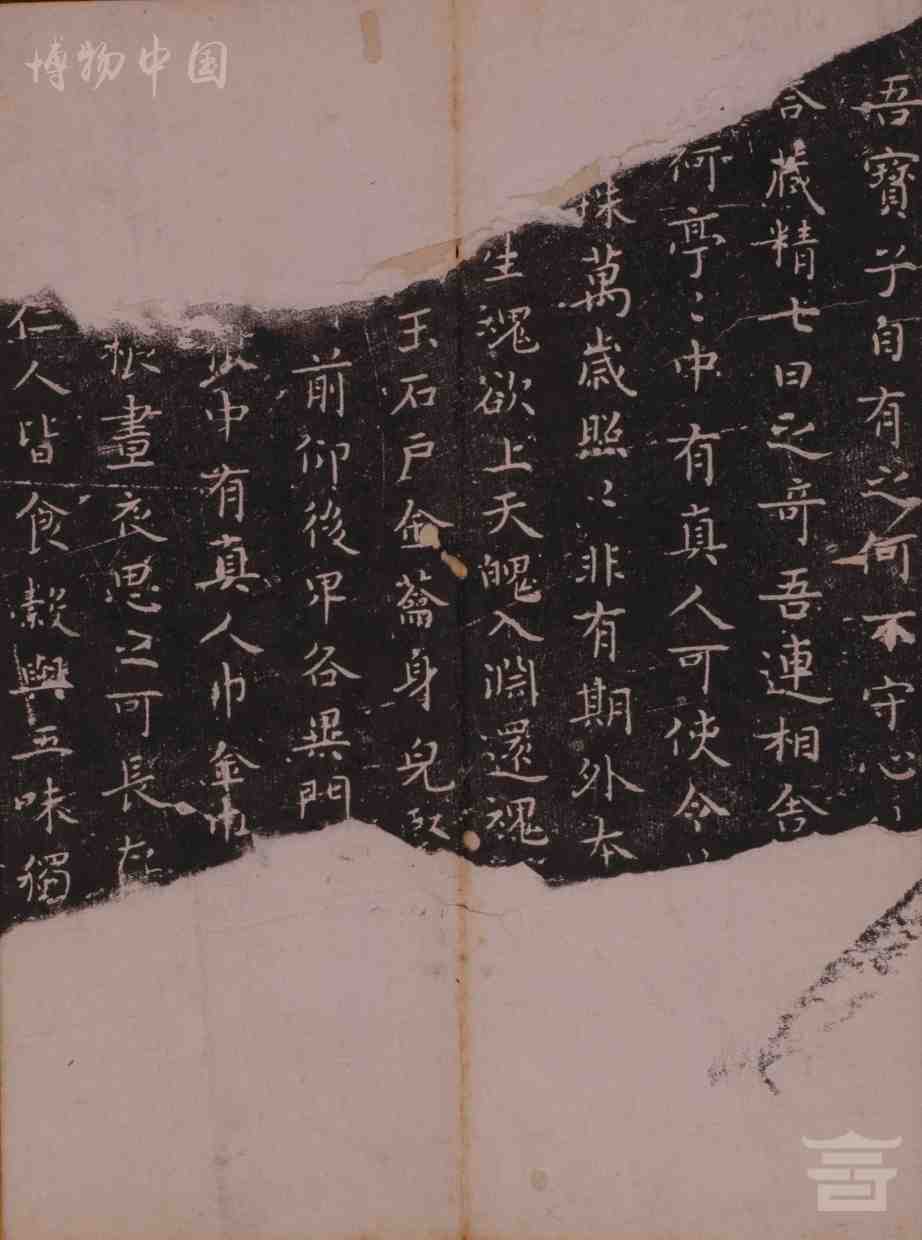 博物中国
吾寶子自有之何不守心
合藏精七日之奇吾連相舍
何亭〻中有真人可使令
珠萬歲照〻非有期外本
生魂欲上天魄入淵還魂
玉石戶金蘥身皃
前仰後卑各異門
中有真人巾金巾
根晝夜思之可長存
仁人皆食穀與五味獨